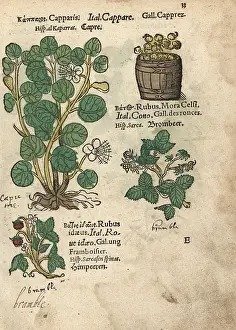 Κάππαρις. Capparis. Ital. Cappare. Gall. Cappres.
Hisp. al Kaparras. Capre.
Βάτος. Rubus. Mora Celsi,
Ital. Couo. Gall. des ronces.
Hisp. Sarca. Brombeer.
Capre
tree
bramble
Rubus
idæus. Ital. Ro,
uo idæo. Gal. ung
Framboisier.
Hisp. Sarcassin spinas.
Himpeeren.
E
bramble
bramble